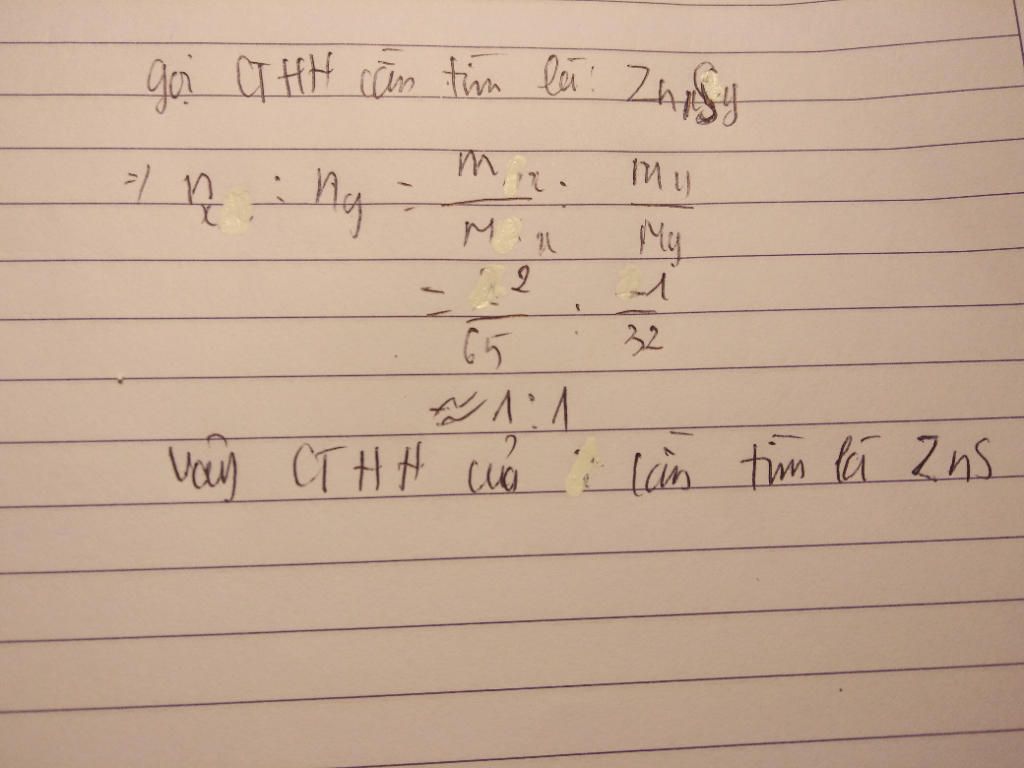 gọi CTHH cần tìm là: ZnxSy
=) nx : ny = mx/Mx : my/My
= 2/65 : 1/32
≈ 1:1
Vậy CTHH của cần tìm là ZnS